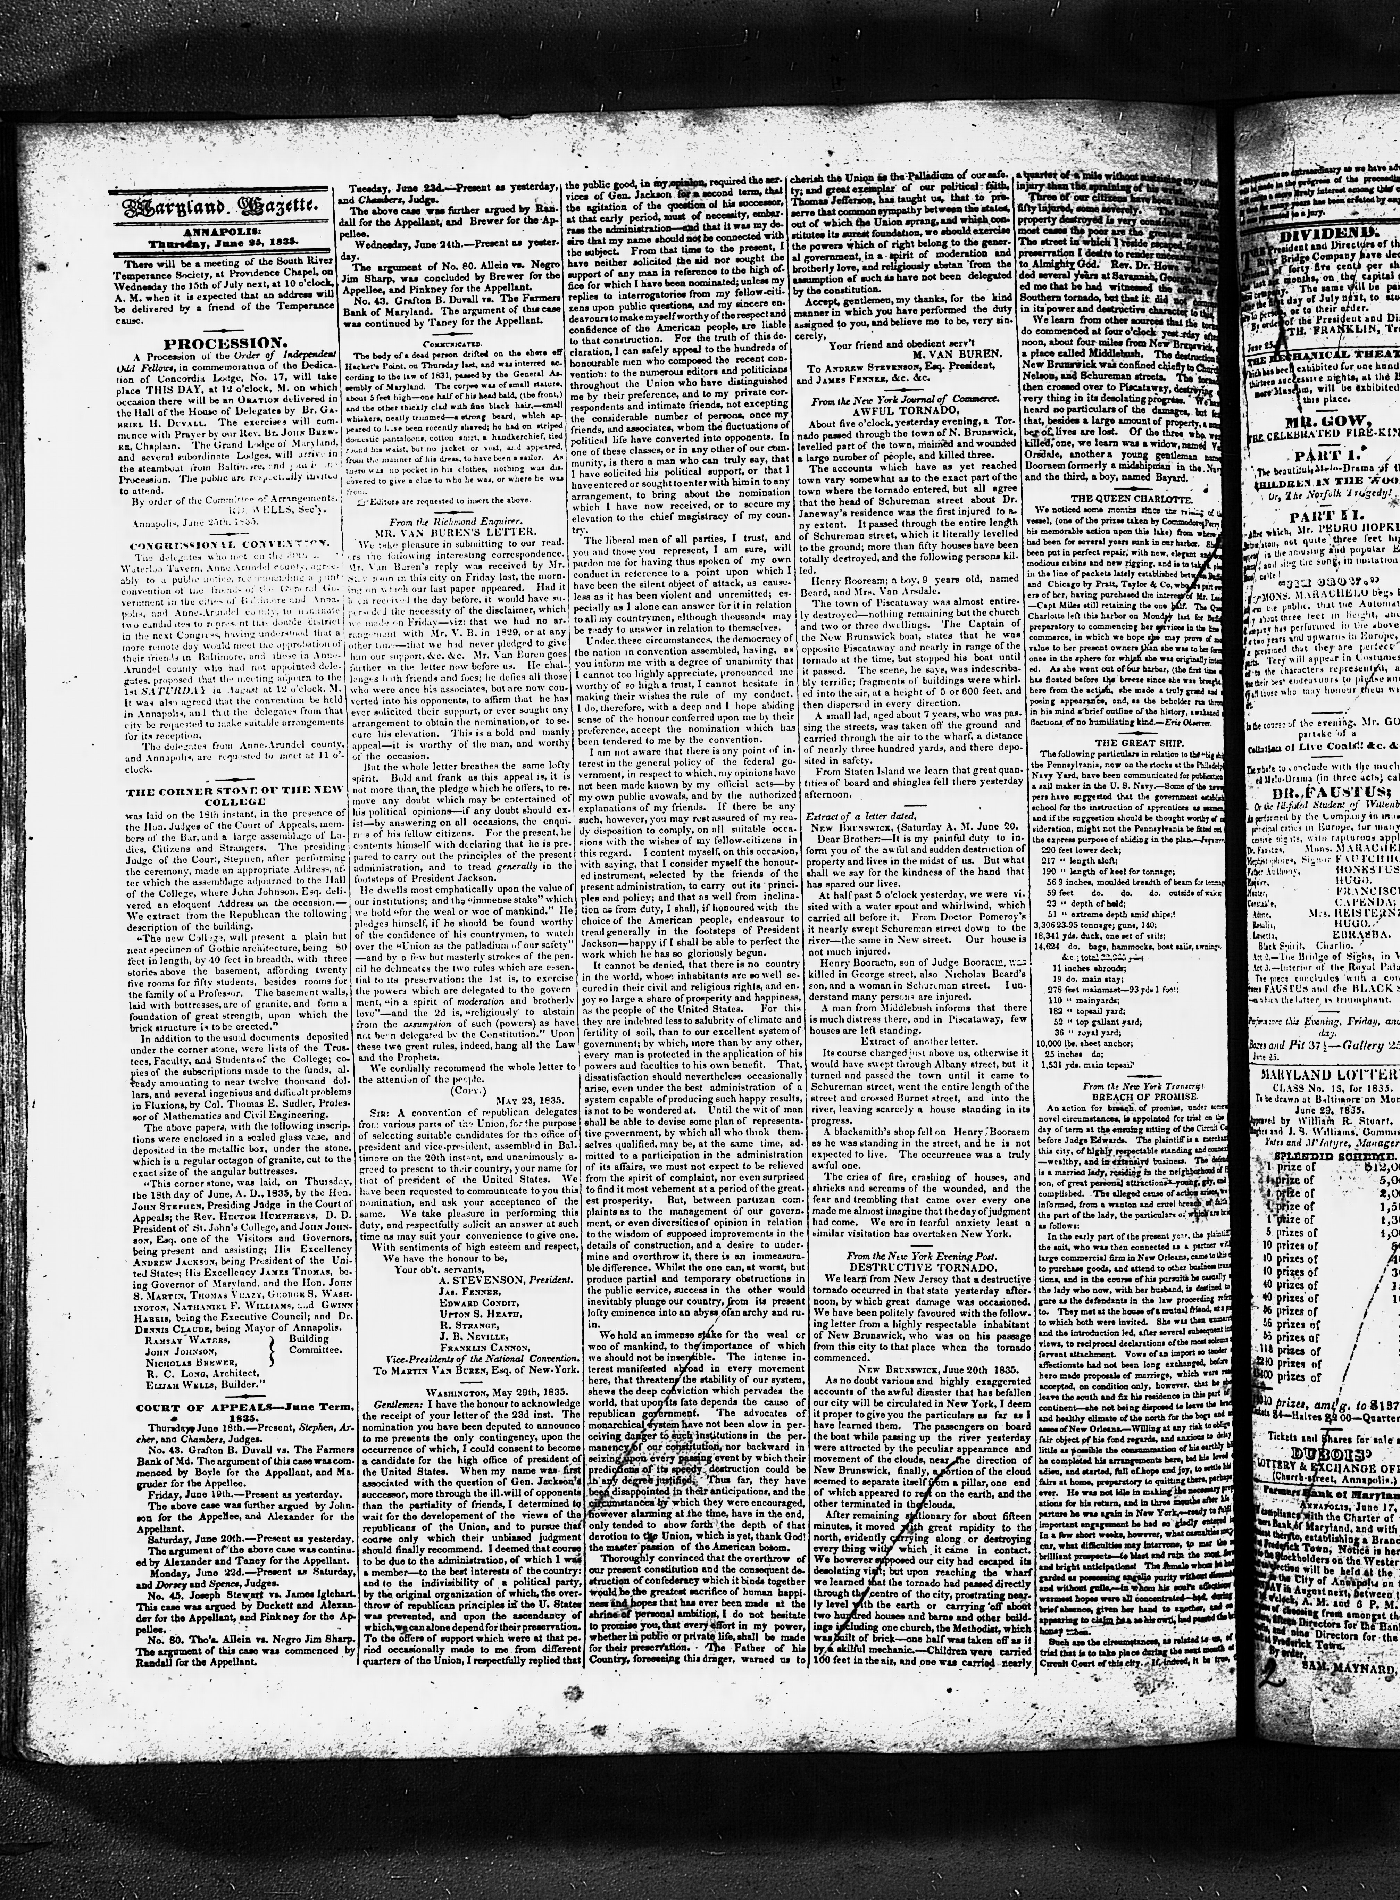 Maryland Gazette.
ANNAPOLIS:
Thursday, June 25, 1835.
There will be a meeting of the South River
Temperance Society, at Providence Chapel, on
Wednesday the 15th of July next, at 10 o'clock,
A. M. when it is expected that an address will
be delivered by a friend of the Temperance
cause.
PROCESSION.
A Procession of the Order of Independent
Odd Fellows, in commemoration of the Dedica-
tion of Concordia Lodge, No. 17, will take
place THIS DAY, at 12 o'clock, M. on which
occasion there will be an ORATION delivered in
the Hall of the House of Delegates by BR. GA-
BRIEL H. DUVALL. The exercises will com-
mence with Prayer by our Rev. BR. JOHN BREW-
ER, Chaplan. The Grand Lodge of Maryland,
and several subordinate Lodges, will arrive in
the steamboat from Baltimore, and join in
Procession. The public are respectfully invited
to attend.
By order of the Committee of Arrangements,
WELLS, Sec'y.
Annapolis, June 25th, 1835.
CONGRESSIONAL CONVENTION.
The delegates who met on the
Waterloo Tavern, Anne-Arundel county, agree-
ably to a public notice, recommending a joint
convention of the friends of the General Go-
vernment in the cities of Baltimore and Anna-
polis, and Anne-Arundel county, to nominate
two candidates to represent this double district
in the next Congress, having understood that a
more remote day would meet the approbation of
their friends in Baltimore, and those in Anne-
Arundel county who had not appointed dele-
gates, proposed that the meeting adjourn to the
1st SATURDAY in August at 12 o'clock, M.
It was also agreed that the convention be held
in Annapolis, and that the delegates from that
city be requested to make suitable arrangements
for its reception.
The delegates from Anne-Arundel county,
and Annapolis, are requested to meet at 11 o'-
clock.
THE CORNER STONE OF THE NEW
COLLEGE
was laid on the 18th instant, in the presence of
the Hon. Judges of the Court of Appeals, mem-
bers of the Bar, and a large assemblage of La-
dies, Citizens and Strangers. The presiding
Judge of the Court, Stephen, after performing
the ceremony, made an appropriate Address, af-
ter which the assemblage adjourned to the Hall
of the College, where John Johnson, Esq. deli-
vered an eloquent Address on the occasion.—
We extract from the Republican the following
description of the building.
"The new College, will present a plain but
neat specimen of Gothic architecture, being 80
feet in length, by 40 feet in breadth, with three
stories above the basement, affording twenty
five rooms for fifty students, besides rooms for
the family of a Professor. The basement walls,
laid with buttresses, are of granite, and form a
foundation of great strength, upon which the
brick structure is to be erected."
In addition to the usual documents deposited
under the corner stone, were lists of the Trus-
tees, Faculty, and Students of the College; co-
pies of the subscriptions made to the funds, al-
ready amounting to near twelve thousand dol-
lars, and several ingenious and difficult problems
in Fluxions, by Col. Thomas E. Sudler, Profes-
sor of Mathematics and Civil Engineering.
The above papers, with the following inscrip-
tions were enclosed in a sealed glass vase, and
deposited in the metallic box, under the stone,
which is a regular octagon of granite, cut to the
exact size of the angular buttresses.
"This corner stone, was laid, on Thursday,
the 18th day of June, A. D., 1835, by the Hon.
JOHN STEPHEN, Presiding Judge in the Court of
Appeals; the Rev. HECTOR HUMPHREYS, D. D.
President of St. John's College, and JOHN JOHN-
SON, Esq. one of the Visitors and Governors,
being present and assisting; His Excellency
ANDREW JACKSON, being President of the Uni-
ted States; His Excellency JAMES THOMAS, be-
ing Governor of Maryland, and the Hon. JOHN
S. MARTIN, THOMAS VEAZY, GEORGE S. WASH-
INGTON, NATHANIEL F. WILLIAMS, and GWINN
HARRIS, being the Executive Council; and Dr.
DENNIS CLAUDE, being Mayor of Annapolis.
RAMSAY WATERS,
JOHN JOHNSON,
NICHOLAS BREWER,
Building
Committee.
R. C. LONG, Architect,
ELIJAH WELLS, Builder."
COURT OF APPEALS—June Term,
1835.
Thursday June 18th.—Present, Stephen, Ar-
cher, and Chambers, Judges.
No. 43. Grafton B. Duvall vs. The Farmers
Bank of Md. The argument of this case was com-
menced by Boyle for the Appellant, and Ma-
gruder for the Appellee.
Friday, June 19th.—Present as yesterday.
The above case was further argued by John-
son for the Appellee, and Alexander for the
Appellant.
Saturday, June 20th.—Present as yesterday.
The argument of the above case was continu-
ed by Alexander and Taney for the Appellant.
Monday, June 22d.—Present as Saturday,
and Dorsey and Spence, Judges.
No. 45. Joseph Stewart vs. James Iglehart.
This case was argued by Duckett and Alexan-
der for the Appellant, and Pinkney for the Ap-
pellee.
No. 80. Tho's. Allein vs. Negro Jim Sharp.
The argument of this case was commenced by
Randall for the Appellant.
Tuesday, June 23d.—Present as yesterday,
and Chambers, Judge.
The above case was further argued by Ran-
dall for the Appellant, and Brewer for the Ap-
pellee.
Wednesday, June 24th.—Present as yester-
day.
The argument of No. 80. Allein vs. Negro
Jim Sharp, was concluded by Brewer for the
Appellee, and Pinkney for the Appellant.
No. 43. Grafton B. Duvall vs. The Farmers
Bank of Maryland. The argument of this case
was continued by Taney for the Appellant.
COMMUNICATED.
The body of a dead person drifted on the shore off
Hacket's Point, on Thursday last, and was interred ac-
cording to the law of 1831, passed by the General As-
sembly of Maryland. The corpse was of small stature,
about 5 feet high—one half of his head bald, (the front,)
and the other thickly clad with fine black hair,—small
whiskers, neatly trimmed—a strong beard, which ap-
peared to have been recently shaved; he had on striped
domestic pantaloons, cotton shirt, a handkerchief, tied
round his waist, but no jacket or vest, and appeared,
from the manner of his dress, to have been a sailor. As
there was no pocket in his clothes, nothing was dis-
covered to give a clue to who he was, or where he was
from.
Editors are requested to insert the above.
From the Richmond Enquirer.
MR. VAN BUREN'S LETTER.
We take pleasure in submitting to our read-
ers the following interesting correspondence.
Mr. Van Buren's reply was received by Mr.
Stevenson in this city on Friday last, the morn-
ing on which our last paper appeared. Had it
been received the day before, it would have su-
perceded the necessity of the disclaimer, which
we made on Friday—viz: that we had no ar-
rangement with Mr. V. B. in 1829, or at any
other time—that we had never pledged to give
him our support, &c. &c. Mr. Van Buren goes
further in the letter now before us. He chal-
lenges both friends and foes; he defies all those
who were once his associates, but are now con-
verted into his opponents, to affirm that he has
ever solicited their support, or ever sought any
arrangement to obtain the nomination, or to se-
cure his elevation. This is a bold and manly
appeal—it is worthy of the man, and worthy
of the occasion.
But the whole letter breathes the same lofty
spirit. Bold and frank as this appeal is, it is
not more than the pledge which he offers, to re-
move any doubt which may be entertained of
his political opinions—if any doubt should ex-
ist—by answering on all occasions, the enqui-
ries of his fellow citizens. For the present, he
contents himself with declaring that he is pre-
pared to carry out the principles of the present
administration, and to tread generally in the
footsteps of President Jackson.
He dwells most emphatically upon the value of
our institutions; and the "immense stake" which
we hold "for the weal or woe of mankind." He
pledges himself, if he should be found worthy
of the confidence of his countrymen, to watch
over the "Union as the palladium of our safety"
—and by a few but masterly strokes of the pen-
cil he delineates the two rules which are essen-
tial to its preservation: the 1st is, to exercise
the powers which are delegated to the govern-
ment, "in a spirit of moderation and brotherly
love"—and the 2d is, "religiously to abstain
from the assumption of such (powers) as have
not been delegated by the Constitution." Upon
these two great rules, indeed, hang all the Law
and the Prophets.
We cordially recommend the whole letter to
the attention of the people.
(COPY.)
MAY 23, 1835.
SIR: A convention of republican delegates
from various parts of the Union, for the purpose
of selecting suitable candidates for the office of
president and vice-president, assembled in Bal-
timore on the 20th instant, and unanimously a-
greed to present to their country, your name for
that of president of the United States. We
have been requested to communicate to you this
nomination, and ask your acceptance of the
same. We take pleasure in performing this
duty, and respectfully solicit an answer at such
time as may suit your convenience to give one.
With sentiments of high esteem and respect,
We have the honour to be,
Your ob't. servants,
A. STEVENSON, President.
JAS. FENNER,
EDWARD CONDIT,
UPTON S. HEATH,
R. STRANGE,
J. B. NEVILLE,
FRANKLIN CANNON,
Vice-Presidents of the National Convention.
To MARTIN VAN BUREN, Esq. of New-York.
WASHINGTON, May 29th, 1835.
Gentlemen: I have the honour to acknowledge
the receipt of your letter of the 23d inst. The
nomination you have been deputed to announce
to me presents the only contingency, upon the
occurrence of which, I could consent to become
a candidate for the high office of president of
the United States. When my name was first
associated with the question of Gen. Jackson's
successor, more through the ill-will of opponents
than the partiality of friends, I determined to
wait for the development of the views of the
republicans of the Union, and to pursue that
course only which their unbiased judgment
should finally recommend. I deemed that course
to be due to the administration, of which I was
a member—to the best interests of the country;
and to the indivisibility of a political party,
by the original organization of which, the over-
throw of republican principles in the U. States
was prevented, and upon the ascendancy of
which, we can alone depend for their preservation.
To the offers of support which were at that pe-
riod occasionally made to me from different
quarters of the Union, I respectfully replied that
the public good, in my opinion, required the ser-
vices of Gen. Jackson for a second term, that
the agitation of the question of his successor,
at that early period, must of necessity, embar-
rass the administration—and that it was my de-
sire that my name should not be connected with
the subject. From that time to the present, I
have neither solicited the aid nor sought the
support of any man in reference to the high of-
fice for which I have been nominated; unless my
replies to interrogatories from my fellow-citi-
zens upon public questions, and my sincere en-
deavours to make myself worthy of the respect and
confidence of the American people, are liable
to that construction. For the truth of this de-
claration, I can safely appeal to the hundreds of
honourable men who composed the recent con-
vention; to the numerous editors and politicians
throughout the Union who have distinguished
me by their preference, and to my private cor-
respondents and intimate friends, not excepting
the considerable number of persons, once my
friends, and associates, whom the fluctuations of
political life have converted into opponents. In
none of these classes, or in any other of our com-
munity, is there a man who can truly say, that
I have solicited his political support, or that I
have entered or sought to enter with him in to any
arrangement, to bring about the nomination
which I have now received, or to secure my
elevation to the chief magistracy of my coun-
try.
The liberal men of all parties, I trust, and
you and those you represent, I am sure, will
pardon me for having thus spoken of my own
conduct in reference to a point upon which I
have been the silent object of attack, as cause-
less as it has been violent and unremitted; es-
pecially as I alone can answer for it in relation
to all my countrymen, although thousands may
be ready to answer in relation to themselves.
Under these circumstances, the democracy of
the nation in convention assembled, having, as
you inform me with a degree of unanimity that
I cannot too highly appreciate, pronounced me
worthy of so high a trust, I cannot hesitate in
making their wishes the rule of my conduct.
I do, therefore, with a deep and I hope abiding
sense of the honour conferred upon me by their
preference, accept the nomination which has
been tendered to me by the convention.
I am not aware that there is any point of in-
terest in the general policy of the federal go-
vernment, in respect to which, my opinions have
not been made known by my official acts—by
my own public avowals, and by the authorized
explanations of my friends. If there be any
such, however, you may rest assured of my rea-
dy disposition to comply, on all suitable occa-
sions with the wishes of my fellow-citizens in
this regard. I content myself, on this occasion,
with saying, that I consider myself the honour-
ed instrument, selected by the friends of the
present administration, to carry out its princi-
ples and policy; and that as well from inclina-
tion as from duty, I shall, if honoured with the
choice of the American people, endeavour to
tread generally in the footsteps of President
Jackson—happy if I shall be able to perfect the
work which he has so gloriously begun.
It cannot be denied, that there is no country
in the world, whose inhabitants are so well se-
cured in their civil and religious rights, and en-
joy so large a share of prosperity and happiness,
as the people of the United States. For this
they are indebted less to salubrity of climate and
fertility of soil, than to our excellent system of
government; by which, more than by any other,
every man is protected in the application of his
powers and faculties to his own benefit. That,
dissatisfaction should nevertheless occasionally
arise, even under the best administration of a
system capable of producing such happy results,
is not to be wondered at. Until the wit of man
shall be able to devise some plan of representa-
tive government, by which all who think them-
selves qualified, may be, at the same time, ad-
mitted to a participation in the administration
of its affairs, we must not expect to be relieved
from the spirit of complaint, nor even surprised
to find it most vehement at a period of the great-
est prosperity. But, between partizan com-
plaints as to the management of our govern-
ment, or even diversities of opinion in relation
to the wisdom of supposed improvements in the
details of construction, and a desire to under-
mine and overthrow it, there is an immeasura-
ble difference. Whilst the one can, at worst, but
produce partial and temporary obstructions in
the public service, success in the other would
inevitably plunge our country, from its present
lofty eminence into an abyss of anarchy and ru-
in.
We hold an immense stake for the weal or
woo of mankind, to the importance of which
we should not be insensible. The intense in-
terest manifested abroad in every movement
here, that threatens the stability of our system,
shews the deep conviction which pervades the
world, that upon its fate depends the cause of
republican government. The advocates of
monarchical system have not been slow in per-
ceiving danger to such institutions in the per-
manency of our constitution, nor backward in
seizing upon every passing event by which their
predictions of its speedy destruction could be
in any degree justified. Thus far, they have
been disappointed in their anticipations, and the
circumstances by which they were encouraged,
however alarming at the time, have in the end,
only tended to show forth the depth of that
devotion to the Union, which is yet, thank God!
the master passion of the American bosom.
Thoroughly convinced that the overthrow of
our present constitution and the consequent de-
struction of confederacy which it binds together
would be the greatest sacrifice of human happi-
ness and hopes that has ever been made at the
shrine of personal ambition, I do not hesitate
to promise you, that every effort in my power,
whether in public or private life, shall be made
for their preservation. The Father of his
Country, foreseeing this danger, warned us to
cherish the Union as the Palladium of our safe-
ty; and great exemplar of our political faith,
Thomas Jefferson, has taught us, that to pre-
serve that common sympathy between the states,
out of which the Union sprang, and which con-
stitutes its surest foundation, we should exercise
the powers which of right belong to the gener-
al government, in a spirit of moderation and
brotherly love, and religiously abstan from the
assumption of such as have not been delegated
by the constitution.
Accept, gentlemen, my thanks, for the kind
manner in which you have performed the duty
assigned to you, and believe me to be, very sin-
cerely,
Your friend and obedient serv't
M. VAN BUREN.
To ANDREW STEVENSON, Esq. President,
and JAMES FENNER, &c. &c.
From the New York Journal of Commerce.
AWFUL TORNADO.
About five o'clock, yesterday evening, a Tor-
nado passed through the town of N. Brunswick,
levelled part of the town, maimed and wounded
a large number of people, and killed three.
The accounts which have as yet reached
town vary somewhat as to the exact part of the
town where the tornado entered, but all agree
that the head of Schureman street about Dr.
Janeway's residence was the first injured to a-
ny extent. It passed through the entire length
of Schureman street, which it literally levelled
to the ground; more than fifty houses have been
totally destroyed, and the following persons kil-
led.
Henry Booream; a boy, 9 years old, named
Beard, and Mrs. Van Arsdale.
The town of Piscataway was almost entire-
ly destroyed—nothing remaining but the church
and two or three dwellings. The Captain of
the New Brunswick boat, states that he was
opposite Piscataway and nearly in range of the
tornado at the time, but stopped his boat until
it passed. The scene, he says, was indescriba-
bly terrific; fragments of buildings were whirl-
ed into the air, at a height of 5 or 600 feet, and
then dispersed in every direction.
A small lad, aged about 7 years, who was pas-
sing the streets, was taken off the ground and
carried through the air to the wharf, a distance
of nearly three hundred yards, and there depo-
sited in safety.
From Staten Island we learn that great quan-
tities of board and shingles fell there yesterday
afternoon.
Extract of a letter dated,
NEW BRUNSWICK, (Saturday A. M. June 20.
Dear Brother—It is my painful duty to in-
form you of the awful and sudden destruction of
property and lives in the midst of us. But what
shall we say for the kindness of the hand that
has spared our lives.
At half past 5 o'clock yesterday, we were vi-
sited with a water spout and whirlwind, which
carried all before it. From Doctor Pomeroy's
it nearly swept Schureman street down to the
river—the same in New street. Our house is
not much injured.
Henry Booraem, son of Judge Booraem, was
killed in George street, also Nicholas Beard's
son, and a woman in Schureman street. I un-
derstand many persons are injured.
A man from Middlebush informs that there
is much distress there, and in Piscataway, few
houses are left standing.
Extract of another letter.
Its course charged just above us, otherwise it
would have swept through Albany street, but it
turned and passed the town until it came to
Schureman street, went the entire length of the
street and crossed Burnet street, and into the
river, leaving scarcely a house standing in its
progress.
A blacksmith's shop fell on Henry Booraem
as he was standing in the street, and he is not
expected to live. The occurrence was a truly
awful one.
The cries of fire, crashing of houses, and
shrieks and screams of the wounded, and the
fear and trembling that came over every one
made me almost imagine that the day of judgment
had come. We are in tearful anxiety least a
similar visitation has overtaken New York.
From the New York Evening Post.
DESTRUCTIVE TORNADO.
We learn from New Jersey that a destructive
tornado occurred in that state yesterday after-
noon, by which great damage was occasioned.
We have been politely favoured with the follow-
ing letter from a highly respectable inhabitant
of New Brunswick, who was on his passage
from this city to that place when the tornado
commenced.
NEW BRUNSWICK, June 20th 1835.
As no doubt various and highly exaggerated
accounts of the awful disaster that has befallen
our city will be circulated in New York, I deem
it proper to give you the particulars as far as I
have learned them. The passengers on board
the boat while passing up the river yesterday
were attracted by the peculiar appearance and
movement of the clouds, near the direction of
New Brunswick, finally, a portion of the cloud
seemed to separate itself from a pillar, one end
of which appeared to rest on the earth, and the
other terminated in the clouds.
After remaining stationary for about fifteen
minutes, it moved with great rapidity to the
north, evidently carrying along or destroying
every thing with which it came in contact.
We however supposed our city had escaped its
desolating visit; but upon reaching the wharf
we learned that the tornado had passed directly
through the centre of the city, prostrating near-
ly level with the earth or carrying off about
two hundred houses and barns and other build-
ings including one church, the Methodist, which
was built of brick—one half was taken off as it
by a skilful mechanic.—Children were carried
100 feet in the air, and one was carried nearly
a quarter of a mile without sustaining any other
injury than the spraining of his
Three of our citizens have been
fifty injured, some severely.
property destroyed is very
most cases the poor are the greatest
The street in which I reside escaped,
preservation I desire to render
to Almighty God. Rev. Dr. How
ded several years at Savannah, Geo
ed me that he had witnessed the
Southern tornado, but that it did not
in its power and destructive character to
We learn from other sources that the tor-
do commenced at four o'clock yesterday after-
noon, about four miles from New Brunswick,
a place called Middlebush. The destruction
New Brunswick was confined chiefly to
Nelson, and Schureman streets. The
then crossed over to Piscataway, destroy
very thing in its desolating progress. We
heard no particulars of the damages, but
that, besides a large amount of property,
of lives are lost. Of the three who were
killed, one, we learn was a widow, named V.
Orsdale, another a young gentleman named
Booraem formerly a midshipman in the Navy
and the third, a boy, named Bayard.
THE QUEEN CHARLOTTE.
We noticed some months since the raising of
vessel, (one of the prizes taken by Commodore Perry,
his memorable action upon this lake) from where
had been for several years sunk in our harbor.
been put in perfect repair, with new, elegant
modious cabins and new rigging, and is to take
in the line of packets lately established between
and Chicago by Pratt, Taylor & Co.
ers of her, having purchased the interest of Mr.
—Capt Miles still retaining the one half. The
Charlotte left this harbor on Monday last for
preparatory to commencing her services in the
commerce, in which we hope she may prove of
value to her present owners than she was to her former
ones in the sphere for which she was originally
ed. As she went out of our harbor, (the first time
has floated before the breeze since she was brought
here from the action, she made a truly grand and
posing appearance, and, as the beholder ran
in his mind a brief outline of the history, awakened
flections of no humiliating kind.—Erie Observer.
THE GREAT SHIP.
The following particulars in relation to the big ship
the Pennsylvania, now on the stocks at the Philadelphia
Navy Yard, have been communicated for publication
a sail maker in the U. S. Navy.—Some of the news-
pers have suggested that the government establish
school for the instruction of apprentices as seamen,
and if the suggestion should be thought worthy of
sideration, might not the Pennsylvania be fitted
the express purpose of abiding in the plan.
220 feet lower deck;
217 " length aloft;
190 " length of keel for tonnage;
56 9 inches, moulded breadth of beam for tonnage
59 feet do. do. do. outside of
23 " depth of hold;
51 " extreme depth amid ships;
3,306 23-95 tonnage; guns, 140;
18,341 yds. duck, one set of sails;
14,624 do. bags, hammocks, boat sails, awning,
&c; total
11 inches shrouds;
19 do. main stay;
278 feet mainmast—93 yds 1 foot;
110 " mainyards;
182 " topsail yard;
52 " top gallant yard;
36 " royal yard;
10,000 lbs. sheet anchor;
25 inches do;
1,531 yds. main topsail
From the New York Transcript.
BREACH OF PROMISE.
An action for breach of promise, under some
novel circumstances, is appointed for trial on the
day of term at the ensuing sitting of the Circuit
before Judge Edwards. The plaintiff is a merchant
this city, of highly respectable standing and
—wealthy, and in extensive business. The defend
is a married lady, residing in the neighborhood of
son, of great personal attractions—young, gay, and
complished. The alleged cause of action arises,
informed, from a wanton and cruel breach of faith
the part of the lady, the particulars of which
as follows:
In the early part of the present year, the plaintiff
the suit, who was then connected as a partner with
large commercial firm in New Orleans, came to this
to purchase goods, and attend to other business
tions, and in the course of his pursuits he casually
the lady who now, with her husband, is destined to
gure as the defendants in the law proceeding
to. They met at the house of a mutual friend, at a
to which both were invited. She was then unmarried
and the introduction led, after several subsequent
views, to reciprocal declarations of the most solemn
fervent attachment. Vows of an import so tender
affectionate had not been long exchanged, before
here made proposals of marriage, which were
accepted, on condition only, however, that he
leave the south and fix his residence in this part of
continent—she not being disposed to leave the
and healthy climate of the north for the bogs and
asses of New Orleans.—Willing at any risk to oblige
fair object of his fond regards, and anxious to delay
little as possible the consummation of his earthly
he completed his arrangements here, bid his loved
adieu, and started, full of hope and joy, to settle his
fairs at home, preparatory to quitting there, perhaps
ever. He was not idle in making the necessary prepa-
ations for his return, and in three months after his
parture he was again in New York,—ready to fulfil
important engagement he had so gladly entered
In a few short weeks, however, what casualties may
cur, what difficulties may intervene, to mar the
brilliant prospects—to blast and ruin the most
and bright anticipations! The female whom he
garded as possessing angelic purity without disguise
and without guile,—in whom his soul's affections
warmest hopes were all concentrated—had, during
brief absence, given her hand to another, and
appearing to claim her as his own, had passed the
honey moon.
Such are the circumstances, as related to us, of
trial that is to take place during the next month
Circuit Court of this city. If, indeed, it be true,
DIVIDEND.
President and Directors of the
River Bridge Company have declared
forty five cents per share
months, on the capital stock
The same will be paid
day of July next, to stockholders
or to their order.
By order of the President and Directors,
TH. FRANKLIN, Tr.
June 25
THE MECHANICAL THEATRE
Which has been exhibited for one hundred
thirteen successive nights, at the
more Museum, will be exhibited
this place.
MR. GOW,
THE CELEBRATED FIRE-KING
PART I.
The beautiful Melo-Drama of the
CHILDREN IN THE WOOD
Or, The Norfolk Tragedy!
PART II.
After which, Mr. PEDRO HOPKI
MONS. MARACHELO begs
course of the evening, Mr. GOW
partake of a
Collations of Live Coals!! &c. &
The whole to conclude with the much
ed Melo-Drama (in three acts) ca
DR. FAUSTUS;
Or the Ill-fated Student of Wittenb
Dr. Faustus, Mons. MARACHEL
Signor FAUTCHIC
HONESTUS
HUGO.
FRANCISC
CAPENDA;
Mrs. REISTERN
HUGO.
EBRASBA.
Black Spirit, Charlio.
Act 2.—The Bridge of Sighs, in V
Act 3.—Interior of the Royal Pala
The piece concludes with a con
FAUSTUS and the BLACK S
makes the latter, is triumphant.
Performance this Evening, Friday, and
day.
Boxes and Pit 37½—Gallery 25
June 25.
MARYLAND LOTTERY
CLASS No. 13, for 1835.
To be drawn at Baltimore on Mon
June 29, 1835.
Approved by William R. Stuart,
and J. S. Williams, Commis
Yates and M'Intyre, Managers
SPLENDID SCHEME.
1 prize of $12,0
1 prize of 5,0
1 prize of 2,0
1 prize of 1,5
1 prize of 1,3
5 prizes of 1,0
10 prizes of
10 prizes of
40 prizes of
prizes of
56 prizes of
prizes of
118 prizes of
prizes of
prizes of
prizes, am'g. to $187
Tickets $4—Halves $2 00—Quarter
Tickets and Shares for sale
DUBOIS'
LOTTERY & EXCHANGE OF
(Church-street, Annapolis.)
Farmers Bank of Maryland
ANNAPOLIS, June 17,
In compliance with the Charter of
Bank of Maryland, and with
thereto, establishing a Branch
Frederick Town, Notice is here
the Stockholders on the Wester
Election will be held at the
the City of Annapolis on
DAY in August next, between
o'clock, A. M. and 6 P. M.
of choosing from amongst
Directors for the Bank
and nine Directors for the
at Frederick Town.
By order,
SAM. MAYNARD,
2